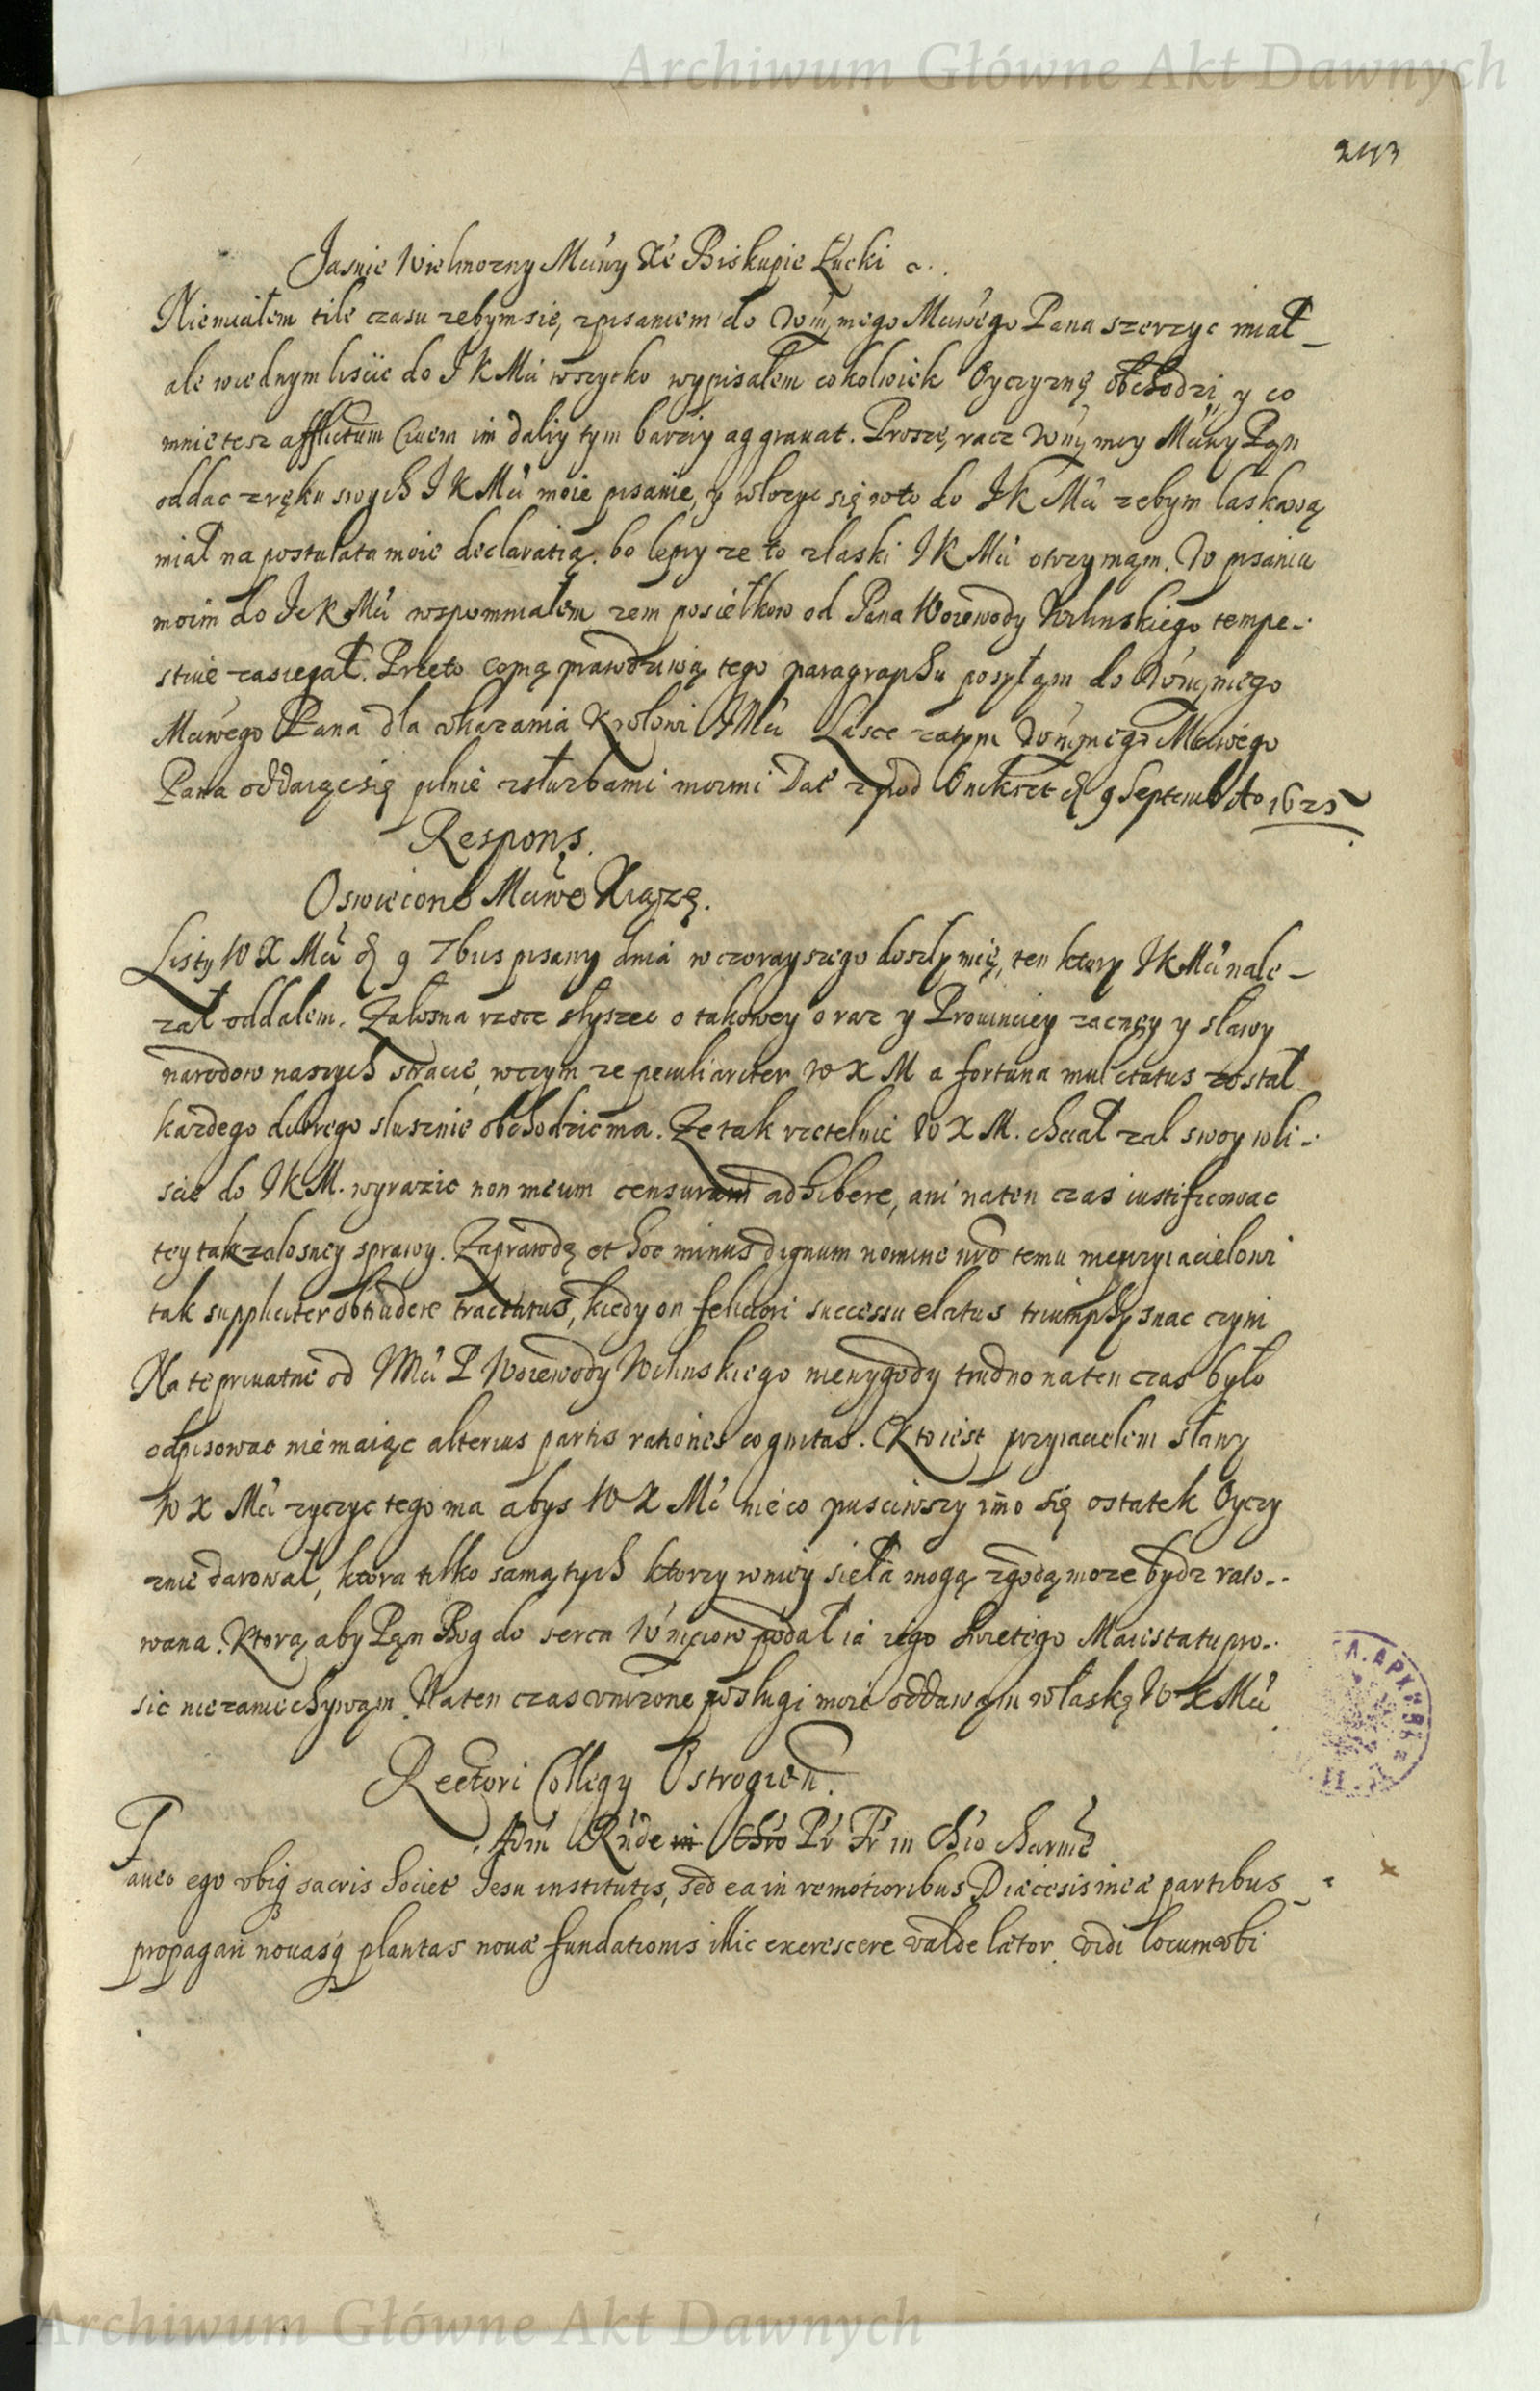 Archiwum Główne Akt Dawnych
243
Jasnie Wielmozny Mćiwy Xe Biskupie Łucki
Niemiałem tile czasu zebym się, z pisaniem do Wm, mego Mćiwego Pana szerzyc miał
ale wiednym liscie do J K Mći wszytko wypisałem cokolwiek Oyczyznę obchodzi, y co
mnie tesz afflictum Ciuem im daliy tym barziy aggrauat. Proszę, racz Wm, moy Mćiwy Pan
oddac z ręku swych J K Mći moie pisanie, y włozyc się wto do J K Mći zebym laskawą
miał na postulata moie declaratią. bo lepiy ze to z laski J K Mći otrzymąm. W pisaniu
moim do Je K Mći wspomniałem zem posiełkow od Pana Woiewody Wilinskiego tempe-
stiue zasięgał. Przeto copią prawdziwą tego paragraphu posyłąm do Wm, mego
Mćiwego Pana dla okazania Krolowi JMći Lasce zatym Wm, mego Mćiwego
Pana oddaiąc się pilnie z służbami moimi Dat z pod Onikszt d 9 Septemb Ao 1625
Respons.
Oswiecone Mćiwe Xiążę.
Listy W X Mći d 9 7bris pisany dnia wczorayszego doszly mię, ten ktory J K Mći nale-
zał oddalem. Załosna rzecz słyszec o takowey oraz y Prouinciey zacney y sławy
narodow naszych stracie, wczym ze peculiariter W X M a fortuna mulctatus został
kazdego dobrego slusznie obchodzic ma. Ze tak rzetelnie W X M. chciał zal swoy w li-
scie do J K M. wyrazic non meum censuram adhibere, ani naten czas iustificowac
tey tak zalosney sprawy. Zaprawdę et hoc minus dignum nomine nro temu nieprzyiacielowi
tak suppliciter obtrudere tractatus, kiedy on feliciori successu elatus triumphy snac czyni
Na te priuatne od JMći P Woiewody Wilinskiego niewygody trudno naten czas było
odpisowac niemaiąc alterius partis rationes cognitas. Kto iest przyiacielem sławy
W X Mći zyczyc tego ma abys W X Mć nieco pusciwszy imo się ostatek Oyczy
znie darował, ktora tilko samą tych ktorzy wniey siełą mogą zgodą moze bydz rato-
wana. Ktorą aby Pąn Bog do serca podał ia iego swietego Maiestatu pro-
sic niezaniechywąm. Naten czas vnizone posługi moie oddawąm w łaskę W X Mći
Rectori Collegy Ostrogien.
Adm Rnde in Chro Pr Pr in Chro Charme
Faueo ego vbiq sacris Societ Jesu institutis, sed ea in remotioribus Diæcesis meæ partibus
propagari nouasq plantas nouæ fundationis illic excrescere valde lætor. vidi locum vbi
Archiwum Główne Akt Dawnych